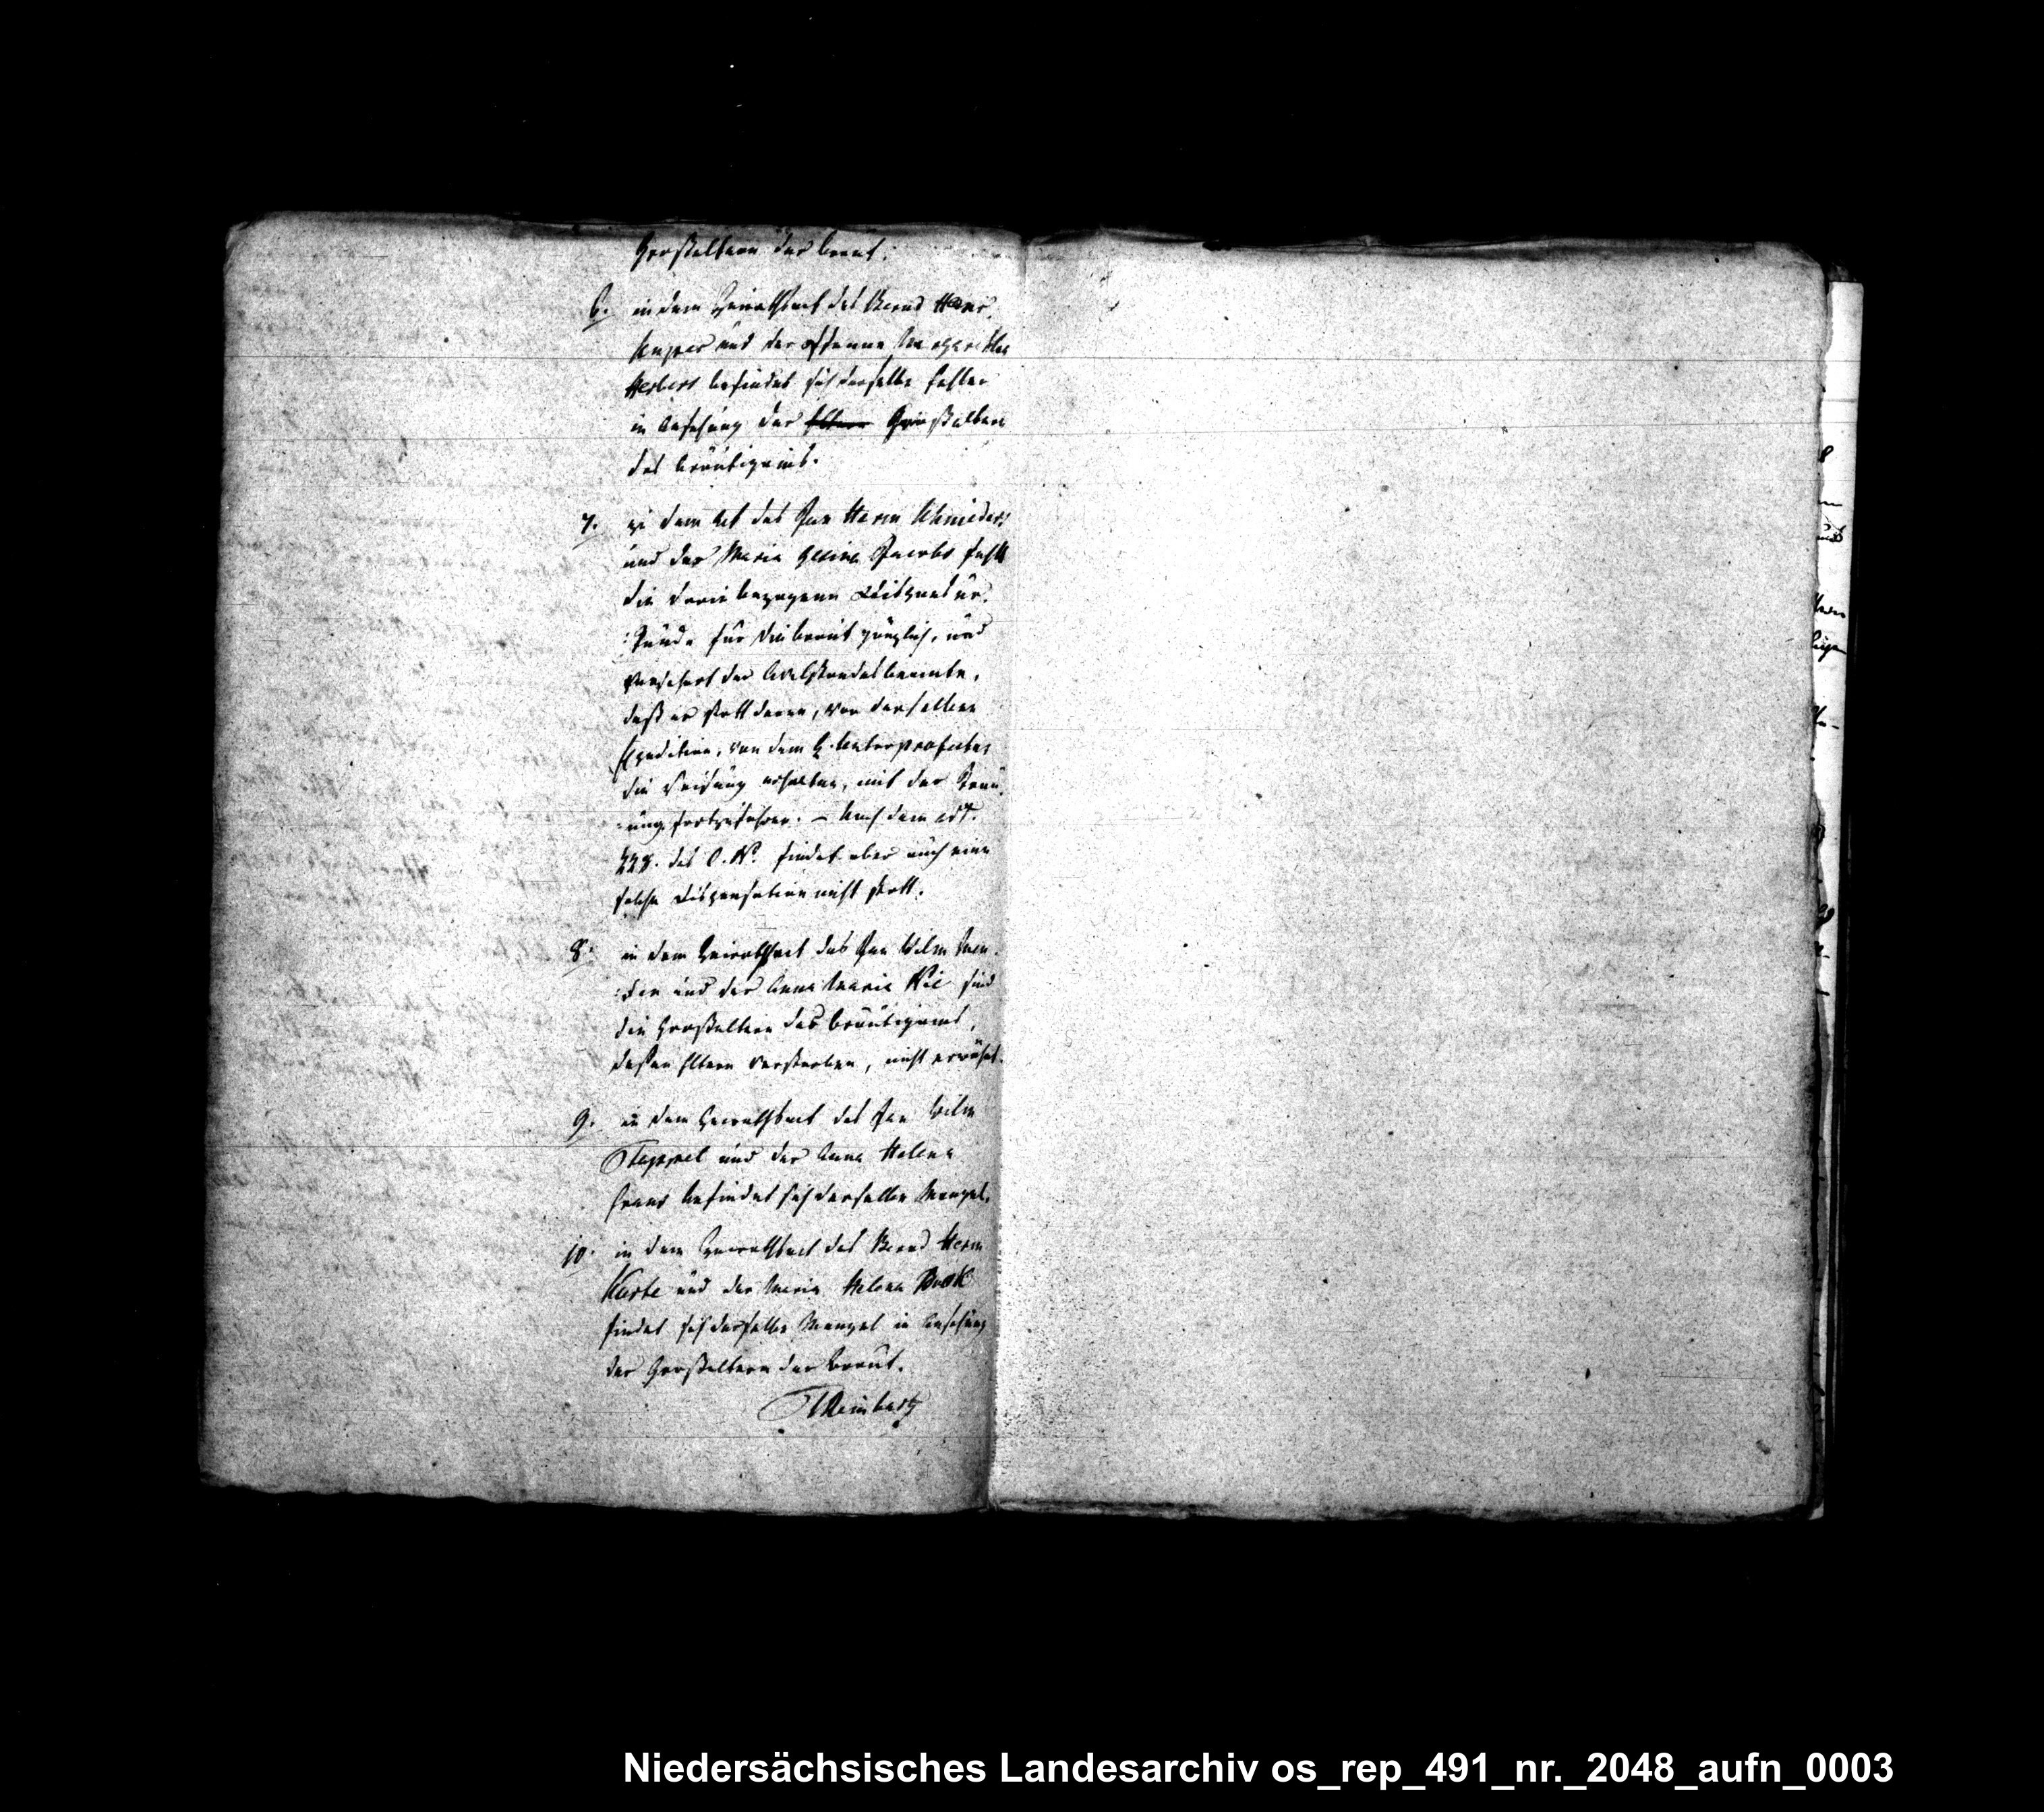 Großeltern der braut.
6. in dem Heirathsact des Bernd Herm.
und der Margaretha
Herbers befindet sich derselbe Fehler
in Ansehung der Eltern Großeltern
des bräutigams.
7. in dem Act des Jan Herm Schnieders
und der Maria Gesina Jacobs fehlt
die darin bezogene
für die braut gänzlich, und
versichert der Civilstandsbeamte,
daß er statt deren, von derselben
Expedition, von dem H. Unterpräfecten
die Weisung erhalten, mit der Trau-
ung fortzufahren. – Nach dem Art.
228. des C. N. findet aber auch eine
solche Dispensation nicht statt.
8. in dem Heirathsact des Jan Wilm
und der Anna Maria sind
die Großeltern des bräutigams,
deßen Eltern verstorben, nicht erwähnt.
9. in dem Heirathsact des Jan Wilm
Tappel und der Anna Helena
befindet sich derselbe Mangel.
10. in dem Heirathsact des Bernd Herm
und der Maria Helena
findet sich derselbe Mangel in Ansehung
der Großeltern der braut.
Niedersächsisches Landesarchiv os_rep_491_nr._2048_aufn_0003